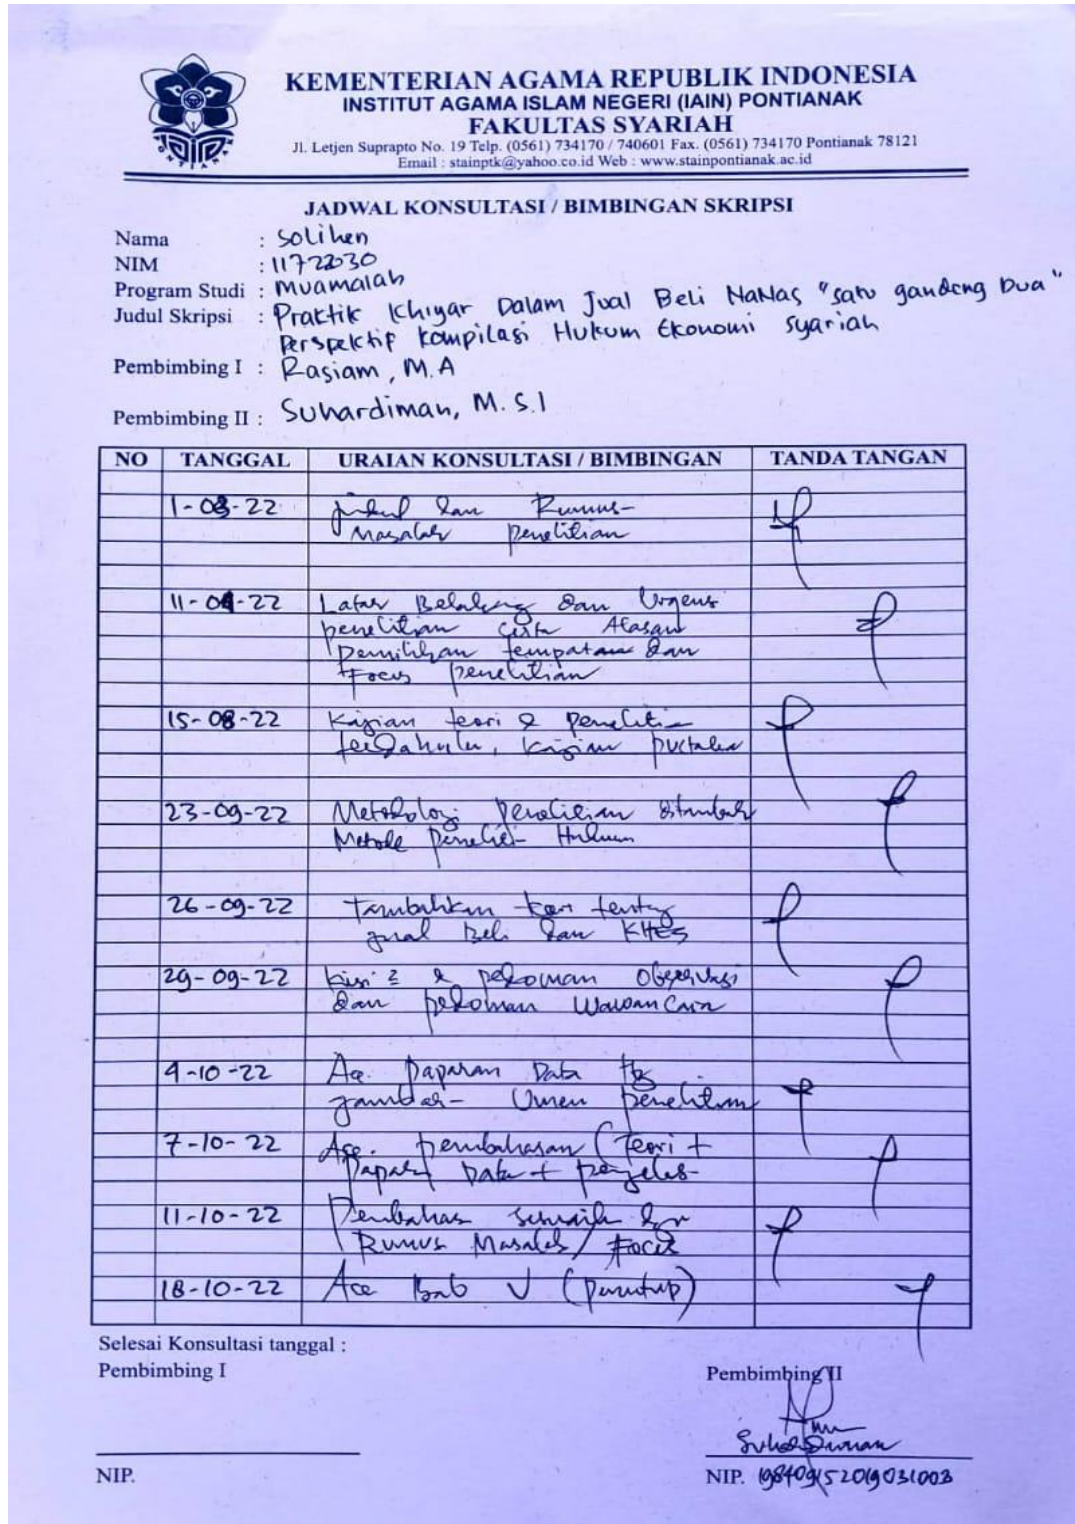 KEMENTERIAN AGAMA REPUBLIK INDONESIA
INSTITUT AGAMA ISLAM NEGERI (IAIN) PONTIANAK
FAKULTAS SYARIAH
Jl. Letjen Suprapto No. 19 Telp. (0561) 734170 / 740601 Fax. (0561) 734170 Pontianak 78121
Email : stainptk@yahoo.co.id Web : www.stainpontianak.ac.id
JADWAL KONSULTASI / BIMBINGAN SKRIPSI
Nama : Solihen
NIM : 1172230
Program Studi : Muamalah
Judul Skripsi : Praktik Khiyar Dalam Jual Beli NaNas "satu gandeng Dua"
Perspektif Kompilasi Hukum Ekonomi Syariah
Pembimbing I : Rasiam, M.A
Pembimbing II : Suhardiman, M.S.I
NO TANGGAL URAIAN KONSULTASI / BIMBINGAN TANDA TANGAN
1-08-22 judul dan Rumus-
Masalah penelitian
11-08-22 Latar Belakang dan Urgensi
penelitian serta Alasan
pemilihan tempat dan
Focus penelitian
15-08-22 Kajian teori & penelitia
terdahulu, kajian pustaka
23-09-22 Metodologi Penelitian ditambah
Metode Penelit- Hukum
26-09-22 Tambahkan teori tentang
jual Beli dan KHES
29-09-22 kisi2 & pedoman Observasi
dan pedoman Wawancara
4-10-22 Acc. paparan Data ttg
gambar- Umum penelitian
7-10-22 Acc. pembahasan (Teori +
Papar Data +
11-10-22 Pembahas sesuaik dgn
Rumus Masalah / Focus
18-10-22 Acc Bab V (penutup)
Selesai Konsultasi tanggal :
Pembimbing I Pembimbing II
Suhardiman
NIP. NIP. 198409152019031003